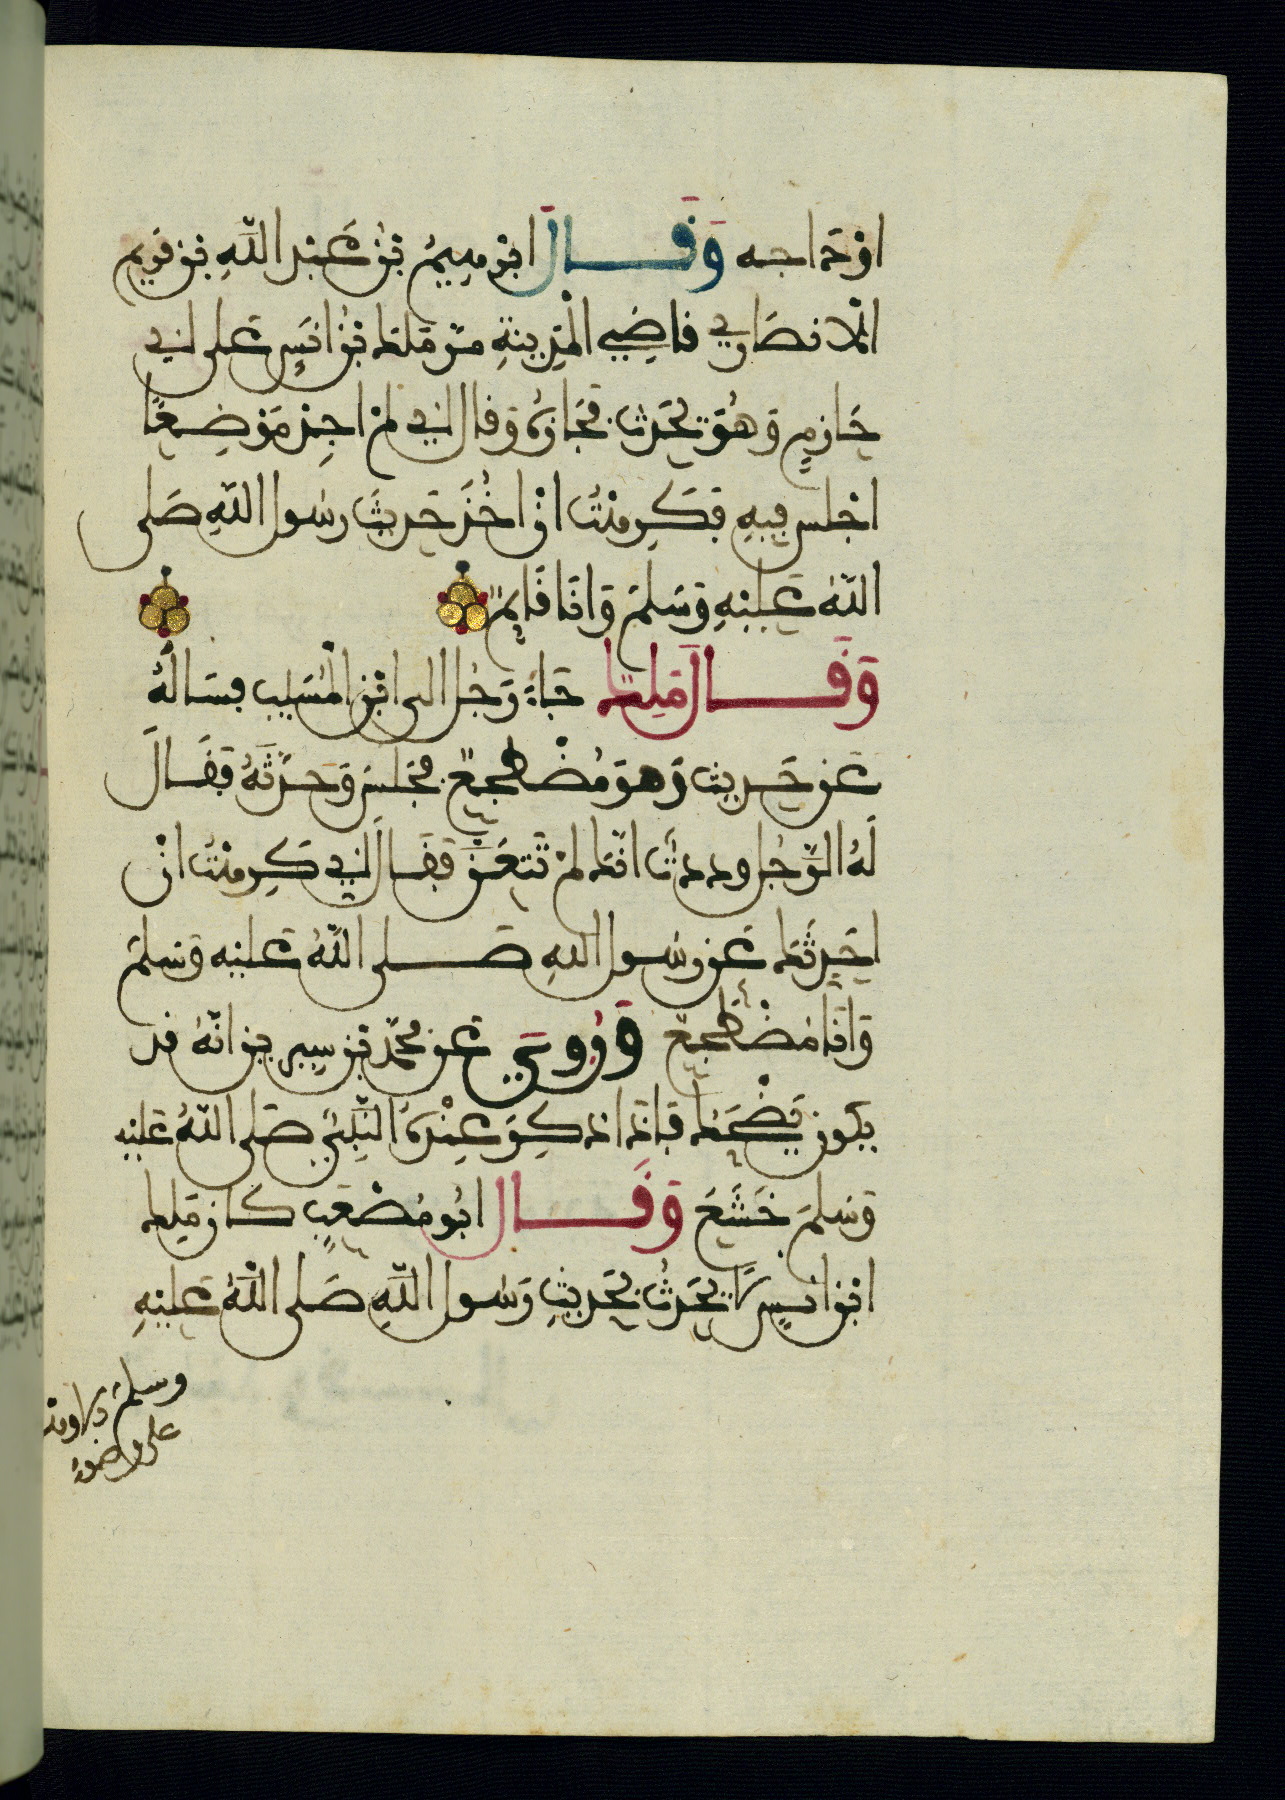 اوْدَاجه وَقَالَ ابْرهيمُ بْنُ عَبْد اللَّهِ بْن قريم
الْانصَاري قاضِي الْمَدِينةِ مَرّ مَلك بْنُ انَسٍ عَلى ابي
حَازمٍ وَهُوَ يُحَدث فجَازهُ وَقال اني لمْ اجِدْ مَوْضِعًا
اجْلس فيهِ فكَرِهْتُ انْ اخُذَ حَديثَ رسُول اللّهِ صَلى
اللّهُ عَليْهِ وَسَلمَ وَانَا قَايمٌ
وَقَالَ مَلِكٌ جَاءَ رَجُل الى ابْن الْمُسَيب فسَالهُ
عَن حَديث وَهوَ مُضْطجعٌ فجَلسَ وَحدّثَهُ فقَالَ
لَهُ الرّجُل وددتُ انّك لمْ تَتعَنَّ فقَالَ اني كَرِهْتُ انْ
احَدِثَك عَن رسُول اللهِ صَلى اللّهُ عَليْه وَسَلمَ
وَانَا مُضْطجعٌ وَرُوِيَ عَن محمّد بْن سِيرين انّهُ قد
يكون يَضْحَك فَاذَا ذكِرَ عِنْدهُ النَّبِيّ صَلى اللّهُ عَليْهِ
وَسَلمَ خَشَعَ وَقَال ابُو مُصْعَبٍ كَان مَلِك
ابْن انسٍ لَا يُحَدثُ بحَديثِ رَسُول اللَّهِ صَلى اللَّهُ عَليْهِ
وسلم الا وهو
على وضوء